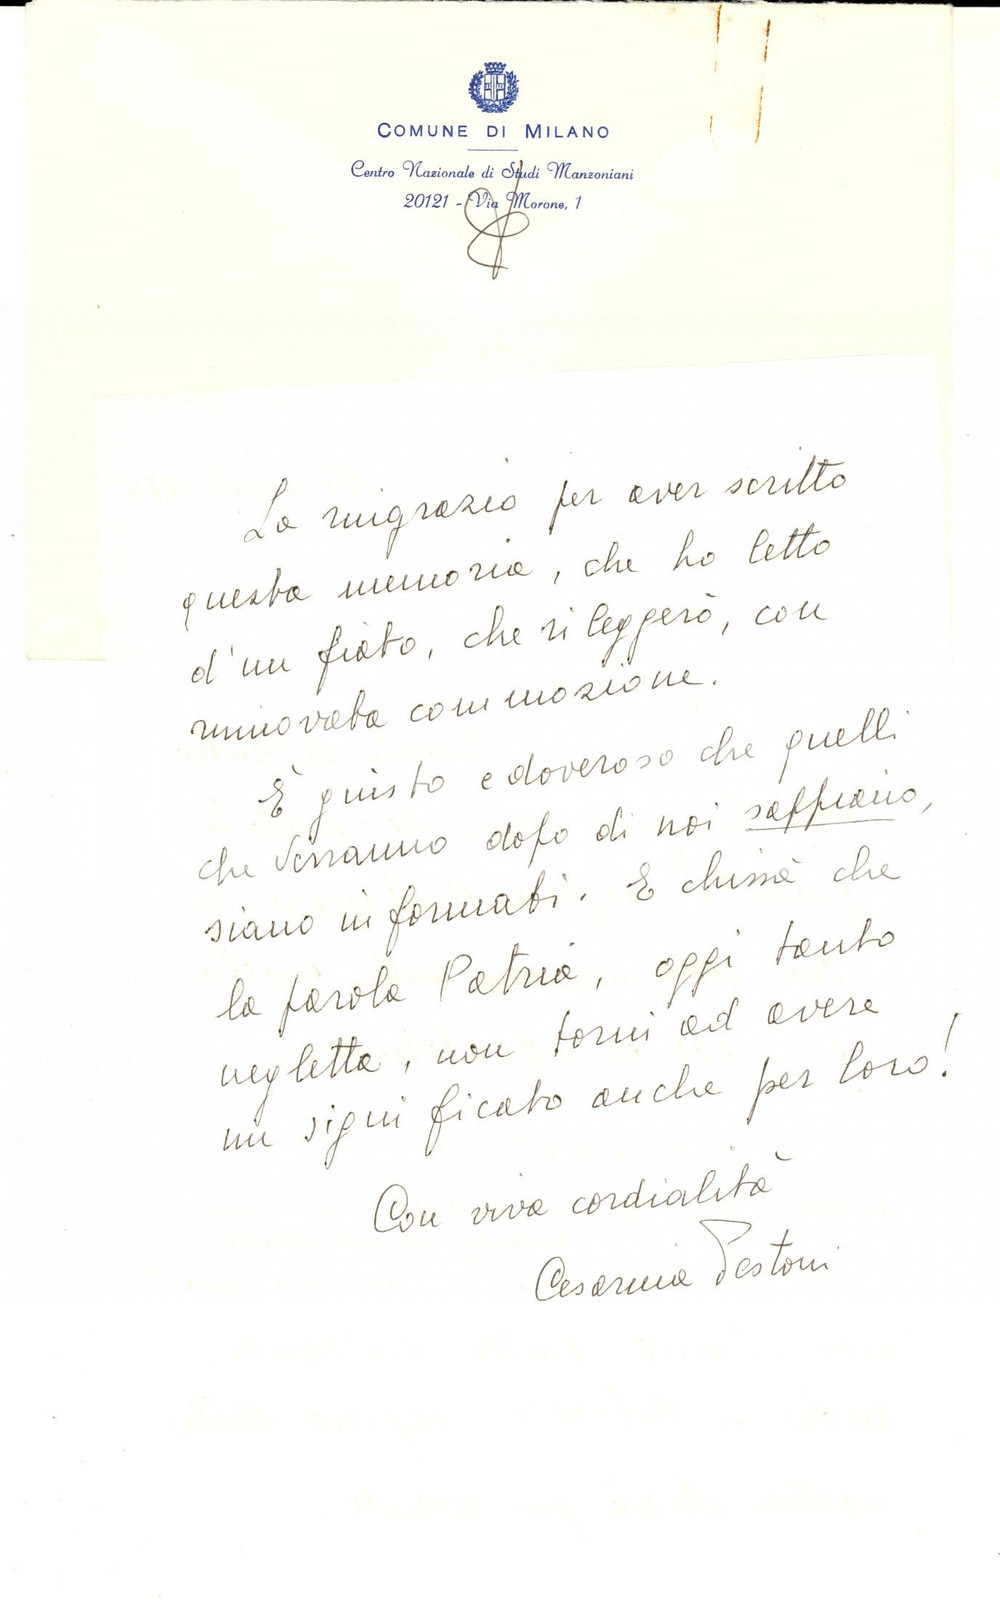 COMUNE DI MILANO
Centro Nazionale di Studi Manzoniani
20121 - Via Morone, 1
La ringrazio per aver scritto
questa memoria, che ho letto
d'un fiato, che rileggerò, con
rinnovata commozione.
È giusto e doveroso che quelli
che verranno dopo di noi sappiano,
siano informati. E chissà che
la parola Patria, oggi tanto
negletta, non torni ad avere
un significato anche per loro!
Con viva cordialità
Cesarina Pestoni